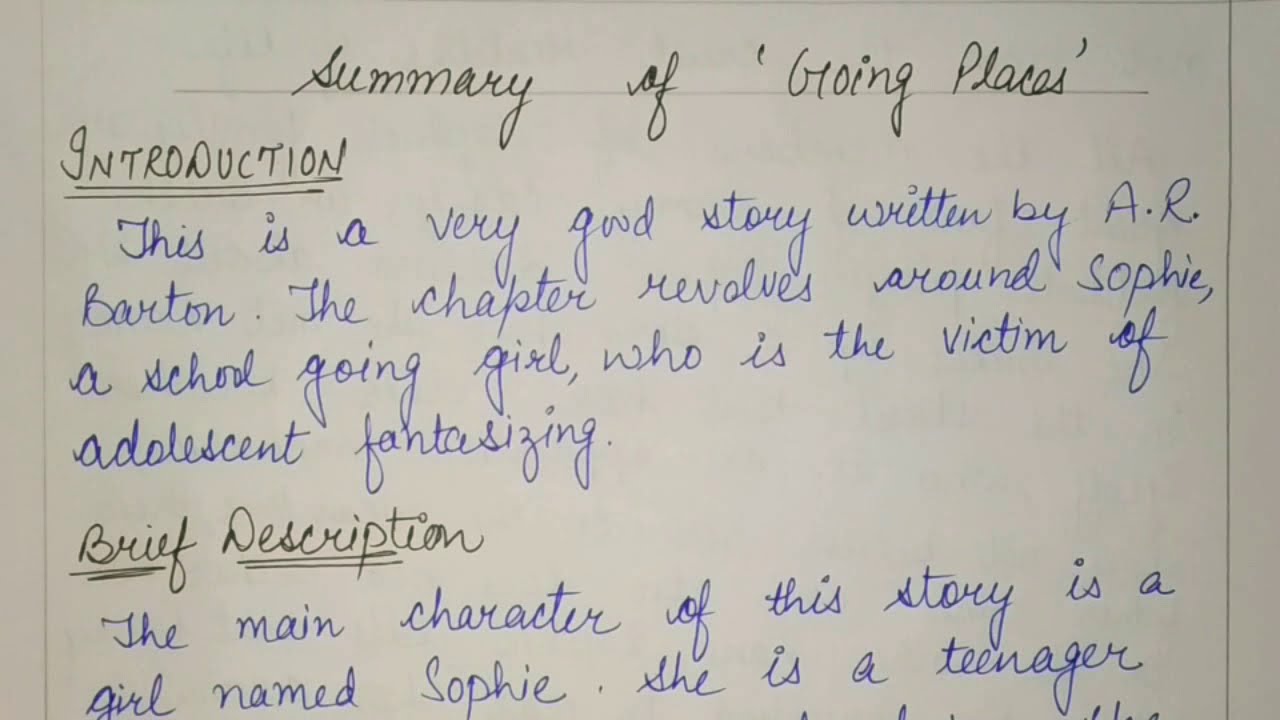 Summary of 'Going Places'
INTRODUCTION
This is a very good story written by A.R.
Barton. The chapter revolves around Sophie,
a school going girl, who is the victim of
adolescent fantasizing.
Brief Description
The main character of this story is a
girl named Sophie. She is a teenager